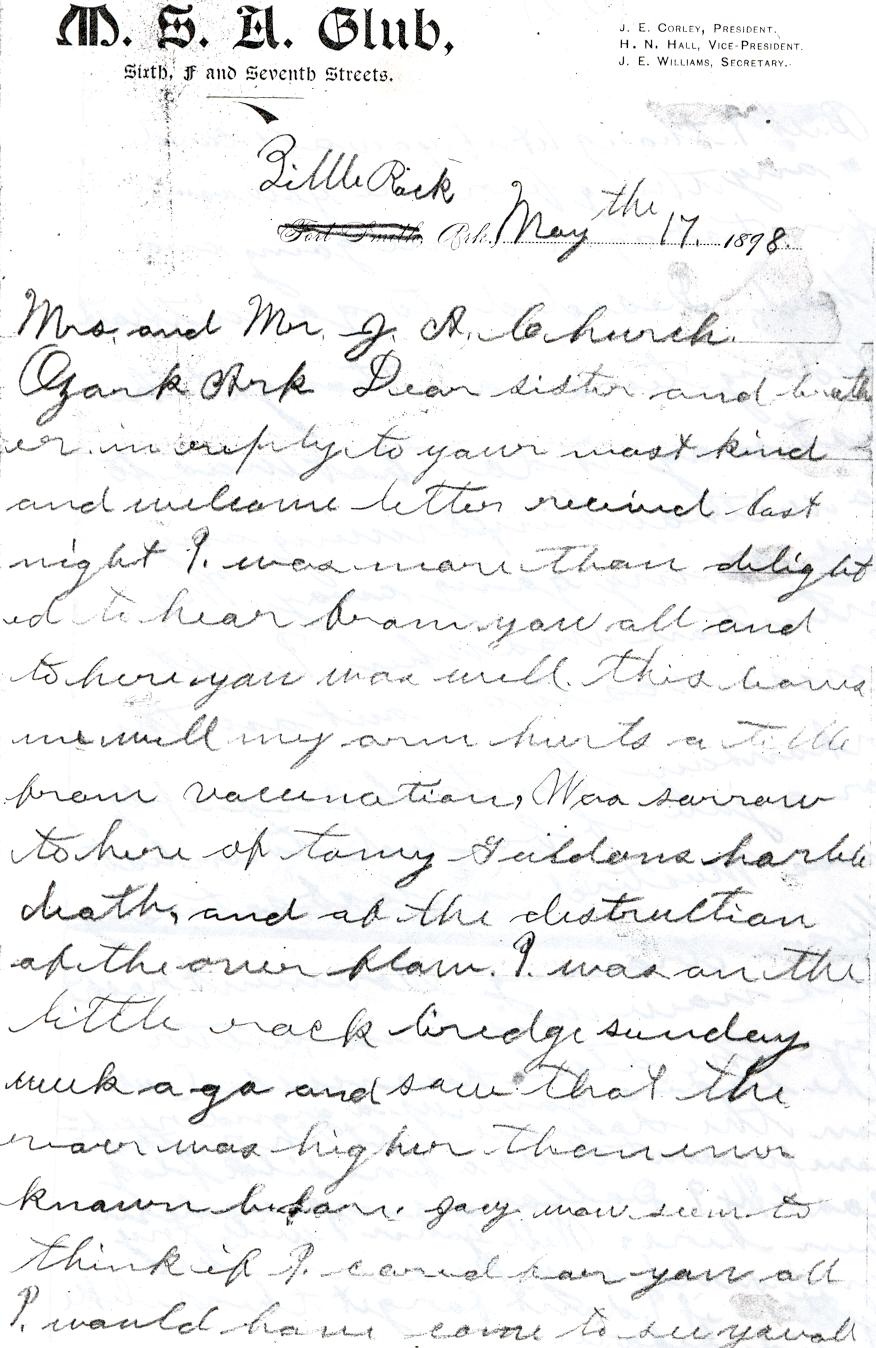 M. S. A. Club,
Sixth, F and Seventh Streets.
J. E. CORLEY, PRESIDENT.
H. N. HALL, VICE-PRESIDENT.
J. E. WILLIAMS, SECRETARY.
Little Rock
Fort Smith, Ark. May the 17. 1898.
Mrs. and Mr. J. A. Church.
Ozark Ark Dear sister and broth
er in reply to your most kind
and welcome letter recived last
night I. was more than delight
ed to hear from you all and
to here you was well. this leaves
me well my arm hurts a little
from vaccination, Was sorrow
to here of tomy horble
death, and of the distruction
of the over flow. I. was on the
little rock bredge sunday
week ago and saw that the
river was higher than ever
known before. you seem to
think if I. cared for you all
I. would have come to see you all